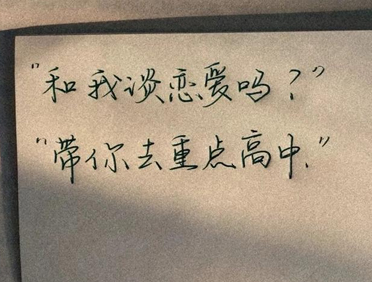 “和我谈恋爱吗？”
“带你去重点高中.”